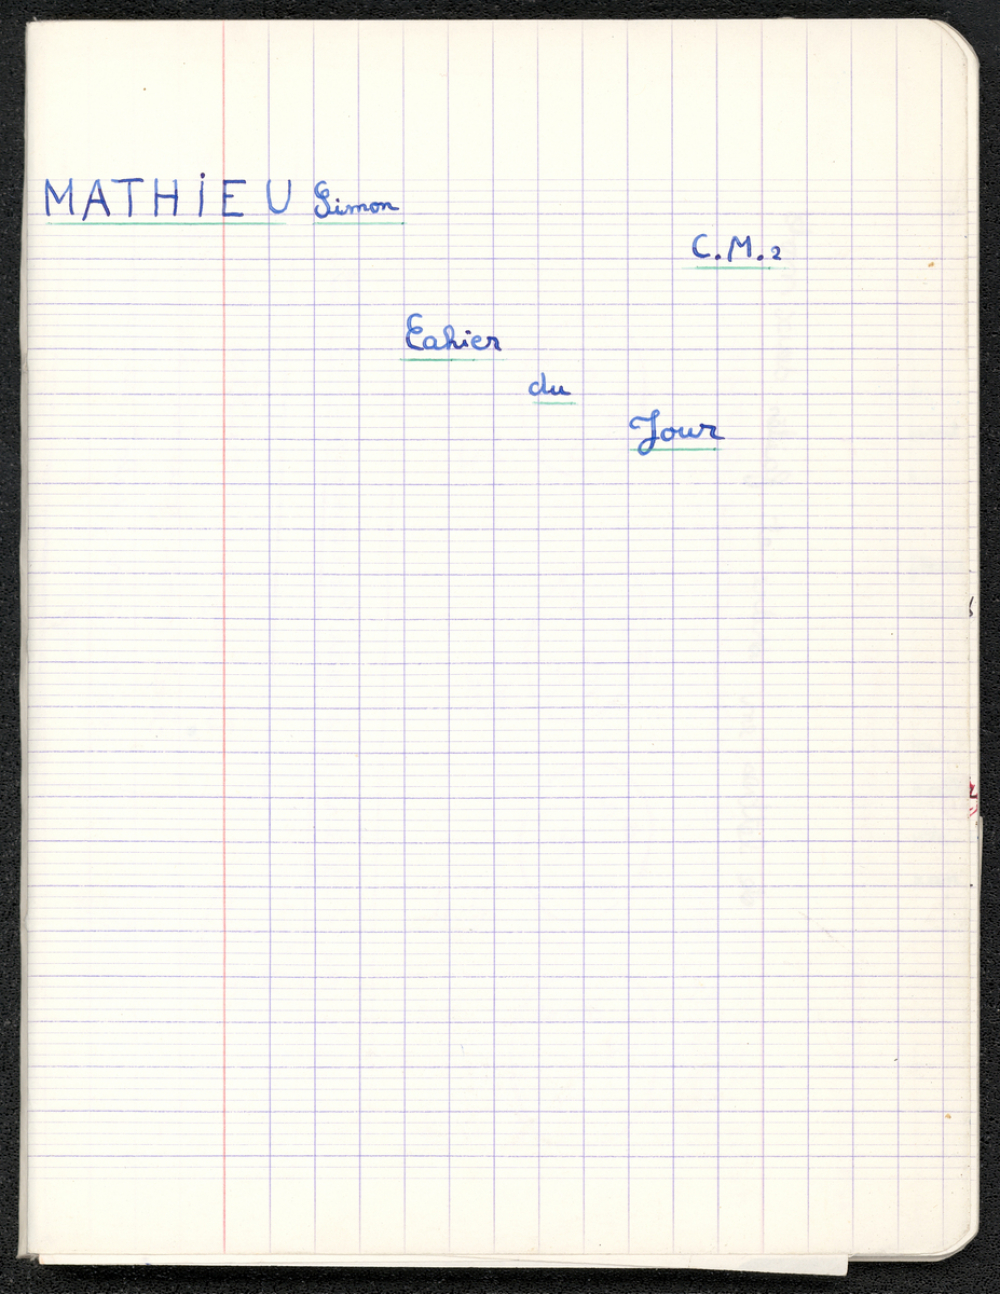 MATHiEU Simon
C.M.2
Cahier
du
Jour